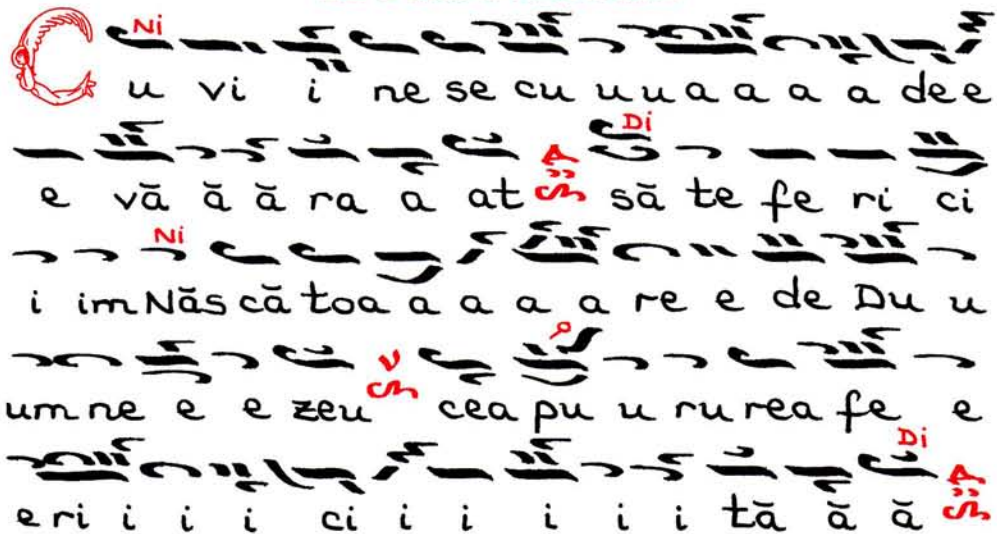 Ni
C u vi i ne se cu u u a a a a de e
Di
e vă ă ă ra a at să te fe ri ci
Ni
i im Năs că toa a a a a re e de Du u
um ne e e zeu cea pu u ru rea fe e
Di
e ri i i i ci i i i i i tă ă ă